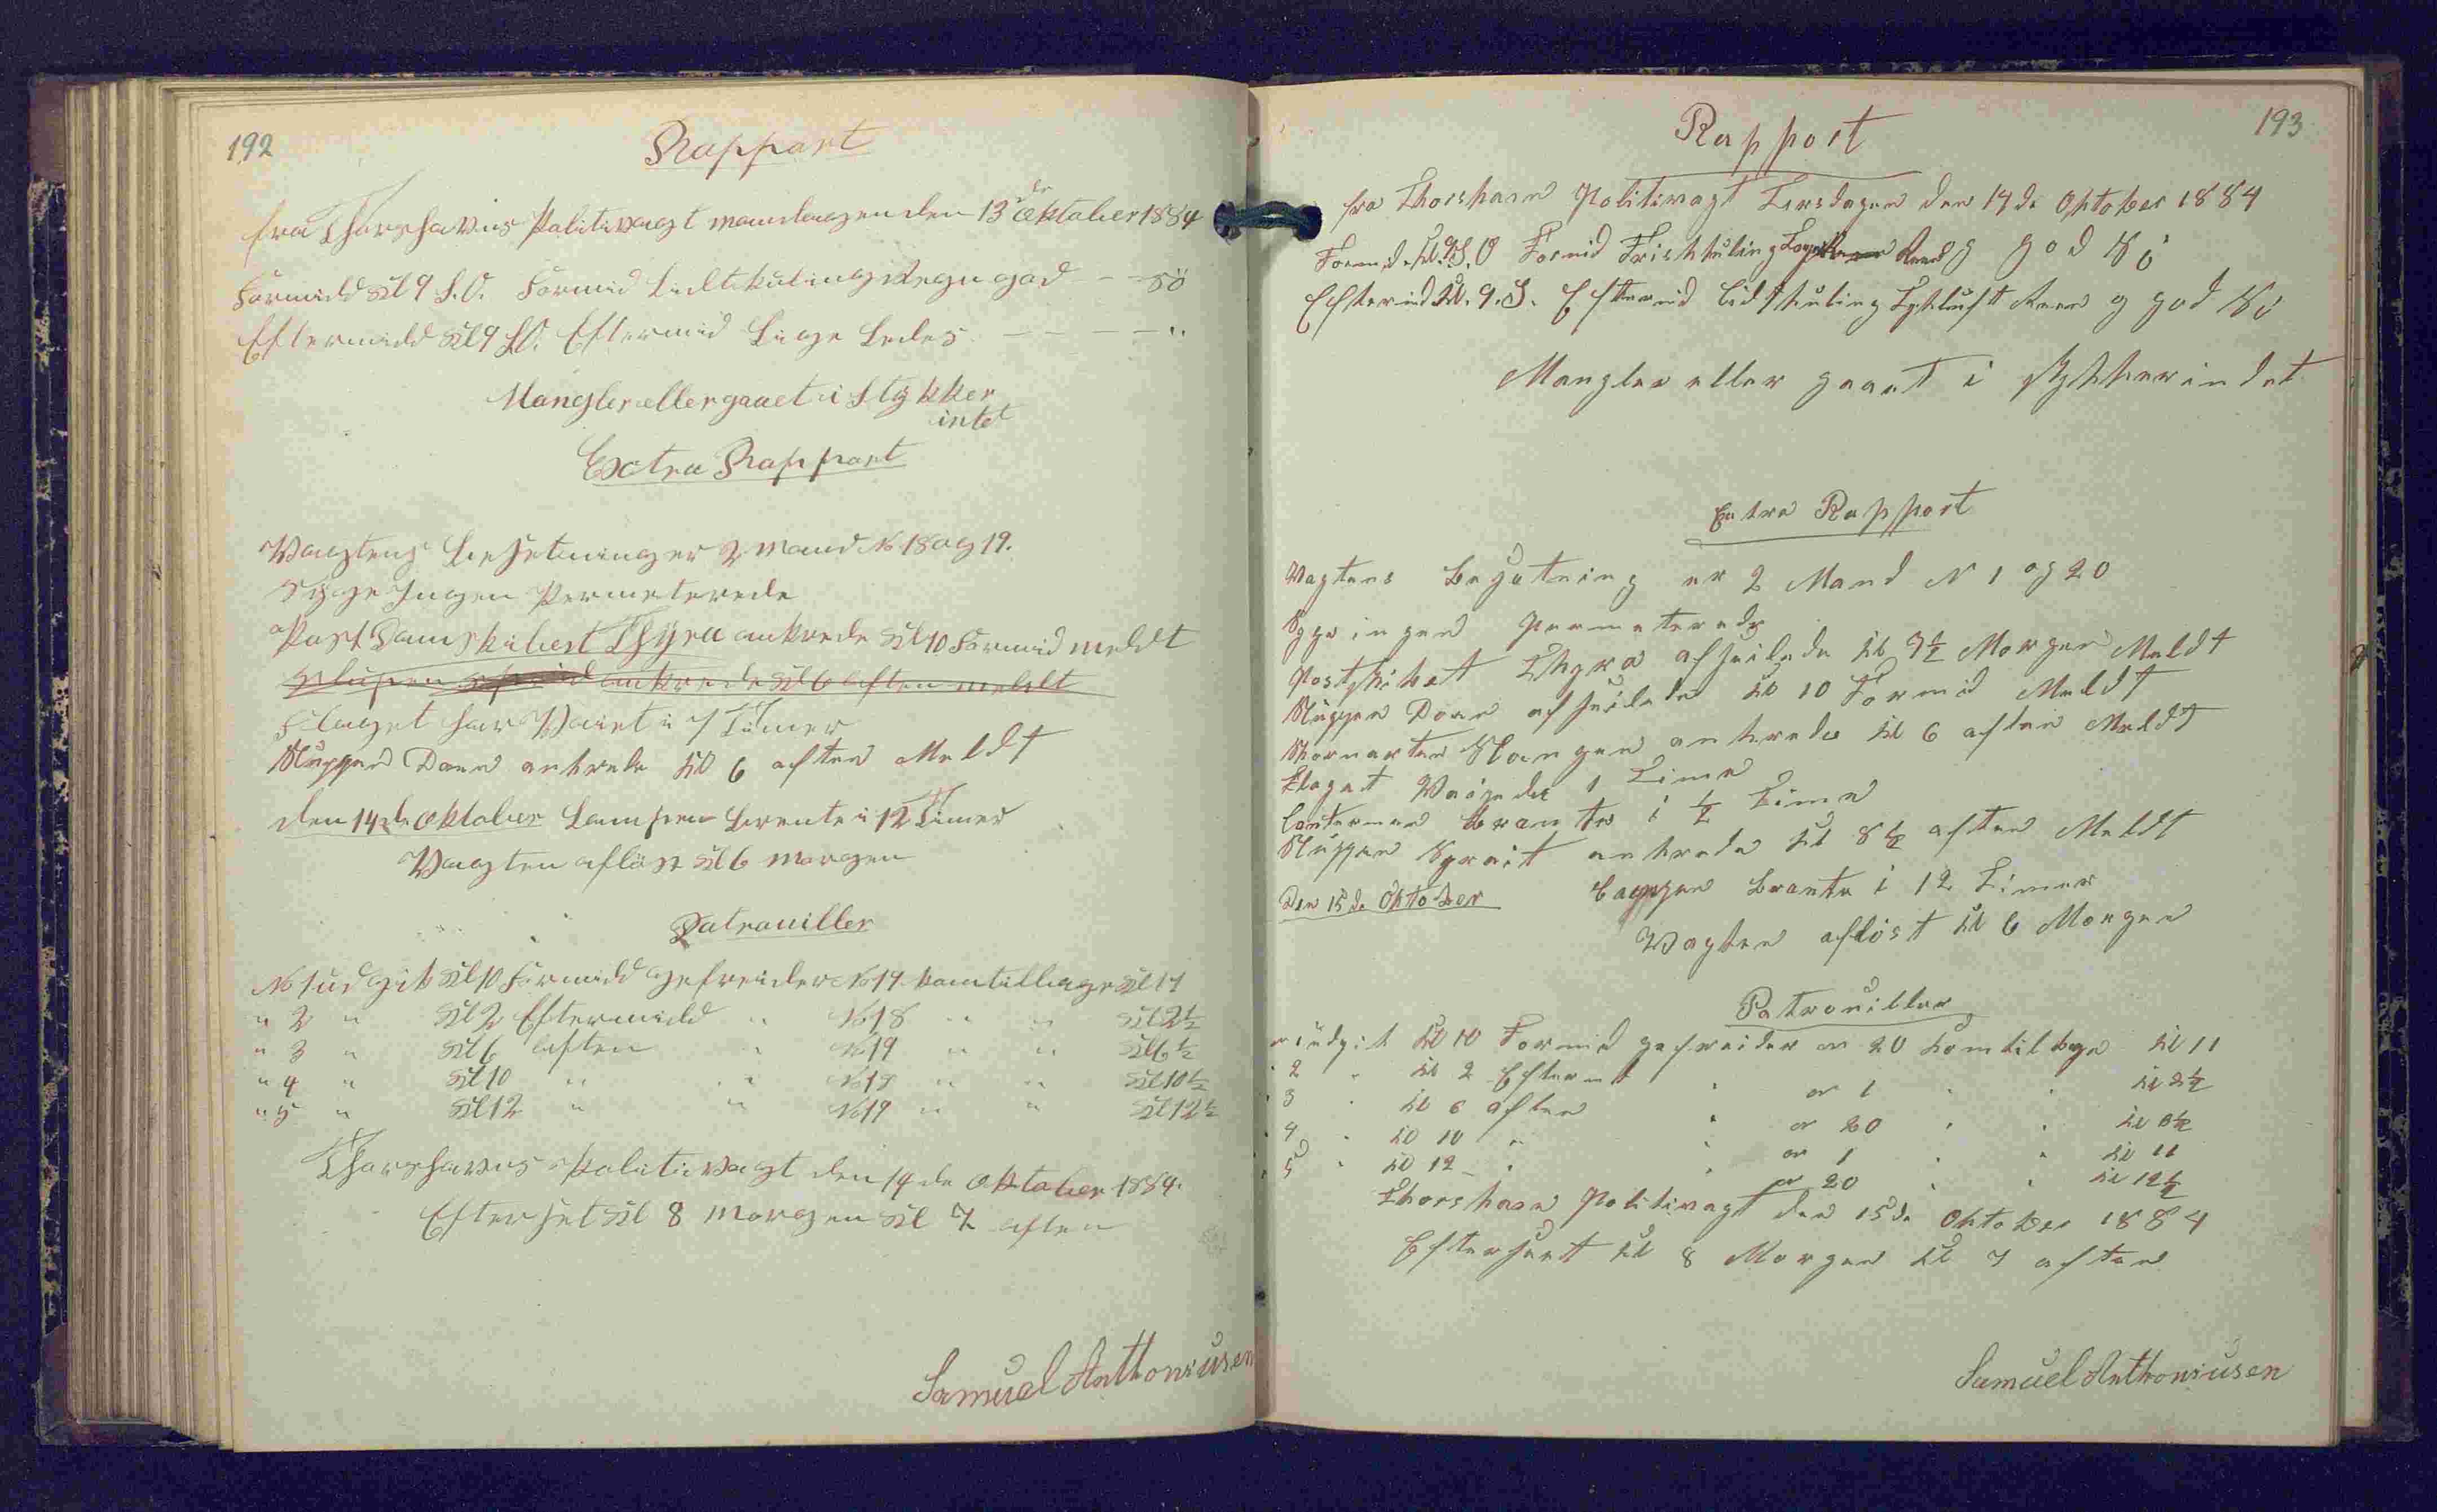 192
Rappart
fra Thorshavns Politivagt mandagen den 13de Oktober 1884
Formidd Kl 9 S.O. Formid Lidt kuling Regn god — Sö
Eftermidd Kl 9 S.O. Eftermid Lige Ledes — — — — "
Mangler eller gaaet i Stykker
intet
Extra Rappart
Vagtens besetning er 2 Mand No 18 og 19.
Syge Ingen Permeterede
Post Damskibest Thyra ankrede Kl 10 Formid meldt
Slupen ankrede Kl 6 aften meldt
Flaget har Vaiet i 7 Timer
Sluppen Daen ankrede Kl 6 aften Meldt
den 14de Oktober Lampen brente i 12 Timer
Vagten aflöst Kl 6 morgen
Patrouiller
No 1 udgik Kl 10 Formidd gefreider No 19 kom tilbage Kl 11
" 2 " Kl 2 Eftermidd " No 18 " " Kl 2½
" 3 " Kl 6 aften " No 19 " " Kl 6½
" 4 " Kl 10 " " No 18 " " Kl 10½
" 5 " Kl 12 " " No 19 " " Kl 12½
Thorshavns Politivagt den 14de Oktober 1884.
Efterset Kl 8 morgen Kl 7 aften
Samuel Anthoniusen
193
Rapport
fra Thorshavn Politivagt Tirsdagen den 14de Oktober 1884
Formid. Kl. 9 S.O Formid Frisk kuling god Sö
Eftermid Kl. 9. S. Eftermid Lidt kuling Tyk luft Reen g god Sö
Mangler eller gaaet i stykker indet
Extra Rapport
Vagtens besetning er 2 Mand N 1 og 20
Syge ingen Permeterede
Postskibet Thyra afseilede Kl 7½ Morgen Meldt
Sluppen Daen afseilede Kl 10 Formid Meldt
Skonnarten ankrede Kl 6 aften Meldt
Flaget Vaiede 1 Time
Lanternen brante i ½ Time
Sluppen Spruit ankrede Kl 8½ aften Meldt
Den 15de Oktober Lampen brante i 12 Timer
Vagten aflöst Kl 6 Morgen
Patrouiller
n 1 udgik Kl 10 Formid gefreider n 20 kom tilbage Kl 11
" 2 " Kl 2 Efterm " n 1 " " Kl 2½
" 3 " Kl 6 aften " n 20 " " Kl 6½
" 4 " Kl 10 " " n 1 " " Kl 11
" 5 " Kl 12 " " n 20 " " Kl 12½
Thorshavn Politivagt den 15de Oktober 1884
Efterseet Kl 8 Morgen Kl 7 aften
Samuel Anthoniusen